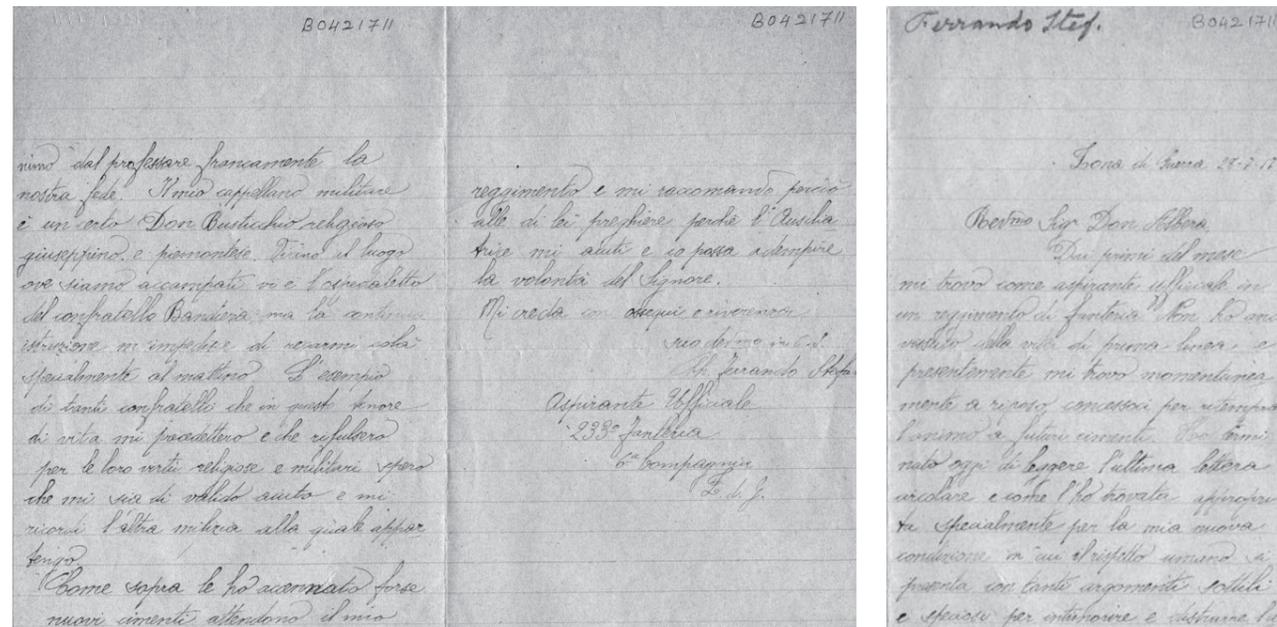 BO421711
nimo dal professare francamente la
nostra fede. Il mio cappellano militare
è un certo Don Busticchio religioso
giuseppino, e piemontese. Vicino il luogo
ove siamo accampati vi è l'ospedaletto
del confratello Bandiera; ma la continua
istruzione m'impedisce di recarmi colà
specialmente al mattino. L'esempio
di tanti confratelli che in questo tenore
di vita mi precedettero e che rifulsero
per le loro virtù religiose e militari spero
che mi sia di valido aiuto e mi
ricordi l'altra milizia alla quale appar
tengo.
Come sopra le ho accennato forse
nuovi cimenti attendono il mio
BO421711
reggimento e mi raccomando perciò
alle di lei preghiere perchè l'Ausilia
trice mi aiuti e io possa adempire
la volontà del Signore.
Mi creda con ossequi e riverenza
suo dev.mo in C. J.
Ch. Ferrando Stefa
Aspirante Ufficiale
233° Fanteria
6ª Compagnia
Z. d. G.
Ferrando Stef.
BO421711
Zona di Guerra
Rev.mo Sig. Don Albera
Dai primi del mese
mi trovo come aspirante ufficiale in
un reggimento di fanteria. Non ho anc
vissuto della vita di prima linea, e
presentemente mi trovo momentanea
mente a riposo, concessoci per ritempra
l'animo a futuri cimenti. Ho termi
nato oggi di leggere l'ultima lettera
circolare e come l'ho trovata appropri
ta specialmente per la mia nuova
condizione in cui il rispetto umano si
presenta con tanti argomenti sottili
e speciosi per intimorire e distrarre l'a